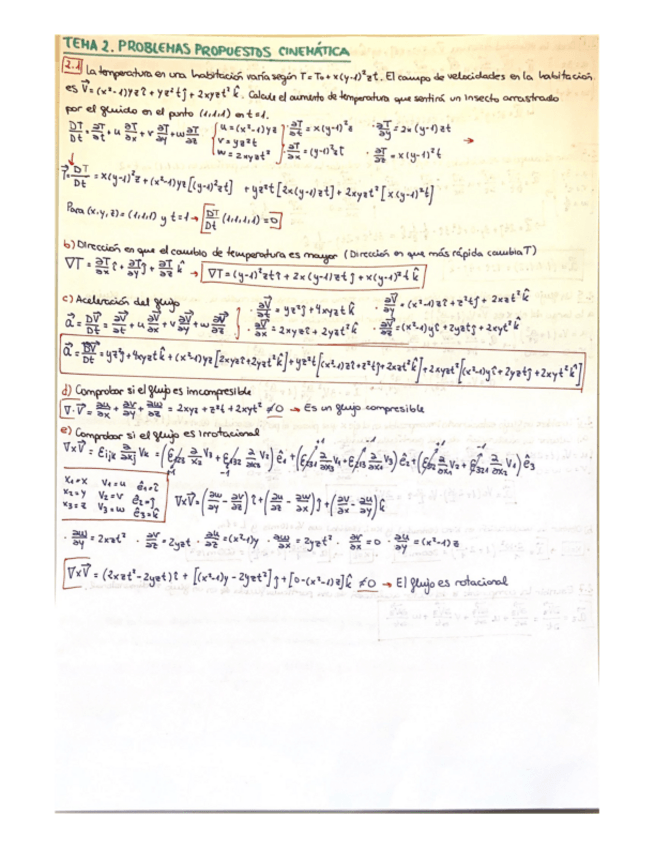 TEMA 2. PROBLEMAS PROPUESTOS CINEMÁTICA
2.1 La temperatura en una habitación varía según T = T₀ + x(y-1)²zt. El campo de velocidades en la habitación
es V⃗ = (x²-1)yz î + yz²t ĵ + 2xyzt² k̂. Calcule el aumento de temperatura que sentirá un insecto arrastrado
por el fluido en el punto (1,1,1) en t=1.
DT/Dt = ∂T/∂t + u ∂T/∂x + v ∂T/∂y + w ∂T/∂z { u = (x²-1)yz v = yz²t w = 2xyzt² } · ∂T/∂t = x(y-1)²z · ∂T/∂y = 2x(y-1)zt · ∂T/∂x = (y-1)²zt · ∂T/∂z = x(y-1)²t →
DT/Dt = x(y-1)²z + (x²-1)yz[(y-1)²zt] + yz²t[2x(y-1)zt] + 2xyzt²[x(y-1)²t]
Para (x,y,z) = (1,1,1) y t=1 → DT/Dt (1,1,1,1) = 0
b) Dirección en que el cambio de temperatura es mayor (Dirección en que más rápida cambia T)
∇T = ∂T/∂x î + ∂T/∂y ĵ + ∂T/∂z k̂ → ∇T = (y-1)²zt î + 2x(y-1)zt ĵ + x(y-1)²t k̂
c) Aceleración del flujo
a⃗ = DV⃗/Dt = ∂V⃗/∂t + u ∂V⃗/∂x + v ∂V⃗/∂y + w ∂V⃗/∂z } · ∂V⃗/∂t = yz²ĵ + 4xyzt k̂ · ∂V⃗/∂y = (x²-1)z î + z²t ĵ + 2xzt² k̂ · ∂V⃗/∂x = 2xyz î + 2yzt² k̂ · ∂V⃗/∂z = (x²-1)y î + 2yzt ĵ + 2xyt² k̂
a⃗ = DV⃗/Dt = yz²ĵ + 4xyzt k̂ + (x²-1)yz[2xyz î + 2yzt² k̂] + yz²t[(x²-1)z î + z²t ĵ + 2xzt² k̂] + 2xyzt²[(x²-1)y î + 2yzt ĵ + 2xyt² k̂]
d) Comprobar si el flujo es imcompresible
∇·V⃗ = ∂u/∂x + ∂v/∂y + ∂w/∂z = 2xyz + z²t + 2xyt² ≠ 0 → Es un flujo compresible
e) Comprobar si el flujo es irrotacional
∇×V⃗ = εijk ∂/∂xj Vk = (ε123 ∂/∂x2 V3 + ε132 ∂/∂x3 V2) ê1 + (ε231 ∂/∂x3 V1 + ε213 ∂/∂x1 V3) ê2 + (ε312 ∂/∂x1 V2 + ε321 ∂/∂x2 V1) ê3
x1=x V1=u ê1=î
x2=y V2=v ê2=ĵ
x3=z V3=w ê3=k̂
∇×V⃗ = (∂w/∂y - ∂v/∂z) î + (∂u/∂z - ∂w/∂x) ĵ + (∂v/∂x - ∂u/∂y) k̂
· ∂w/∂y = 2xzt² · ∂v/∂z = 2yzt · ∂u/∂z = (x²-1)y · ∂w/∂x = 2yzt² · ∂v/∂x = 0 · ∂u/∂y = (x²-1)z
∇×V⃗ = (2xzt² - 2yzt) î + [(x²-1)y - 2yzt²] ĵ + [0 - (x²-1)z] k̂ ≠ 0 → El flujo es rotacional